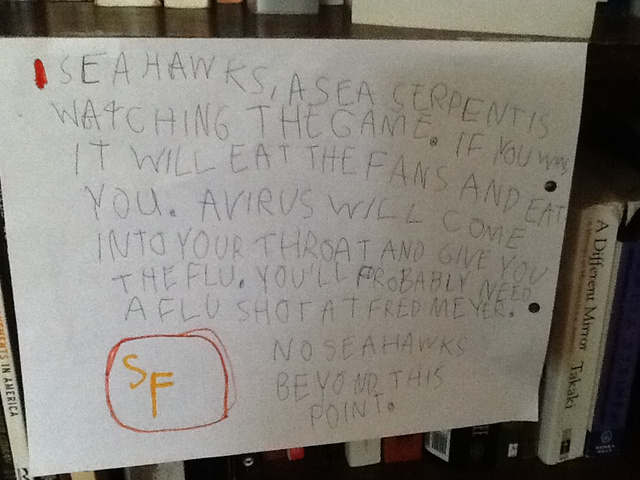 SEAHAWKS, A SEA SERPENT IS
WATCHING THE GAME. IF YOU WIN
IT WILL EAT THE FANS AND EAT
YOU. A VIRUS WILL COME
INTO YOUR THROAT AND GIVE YOU
THE FLU. YOU'LL PROBABLY NEED
A FLU SHOT AT FRED MEYER.
NO SEAHAWKS
BEYOND THIS
POINT.
SF
A Different Mirror Takaki
IN AMERICA